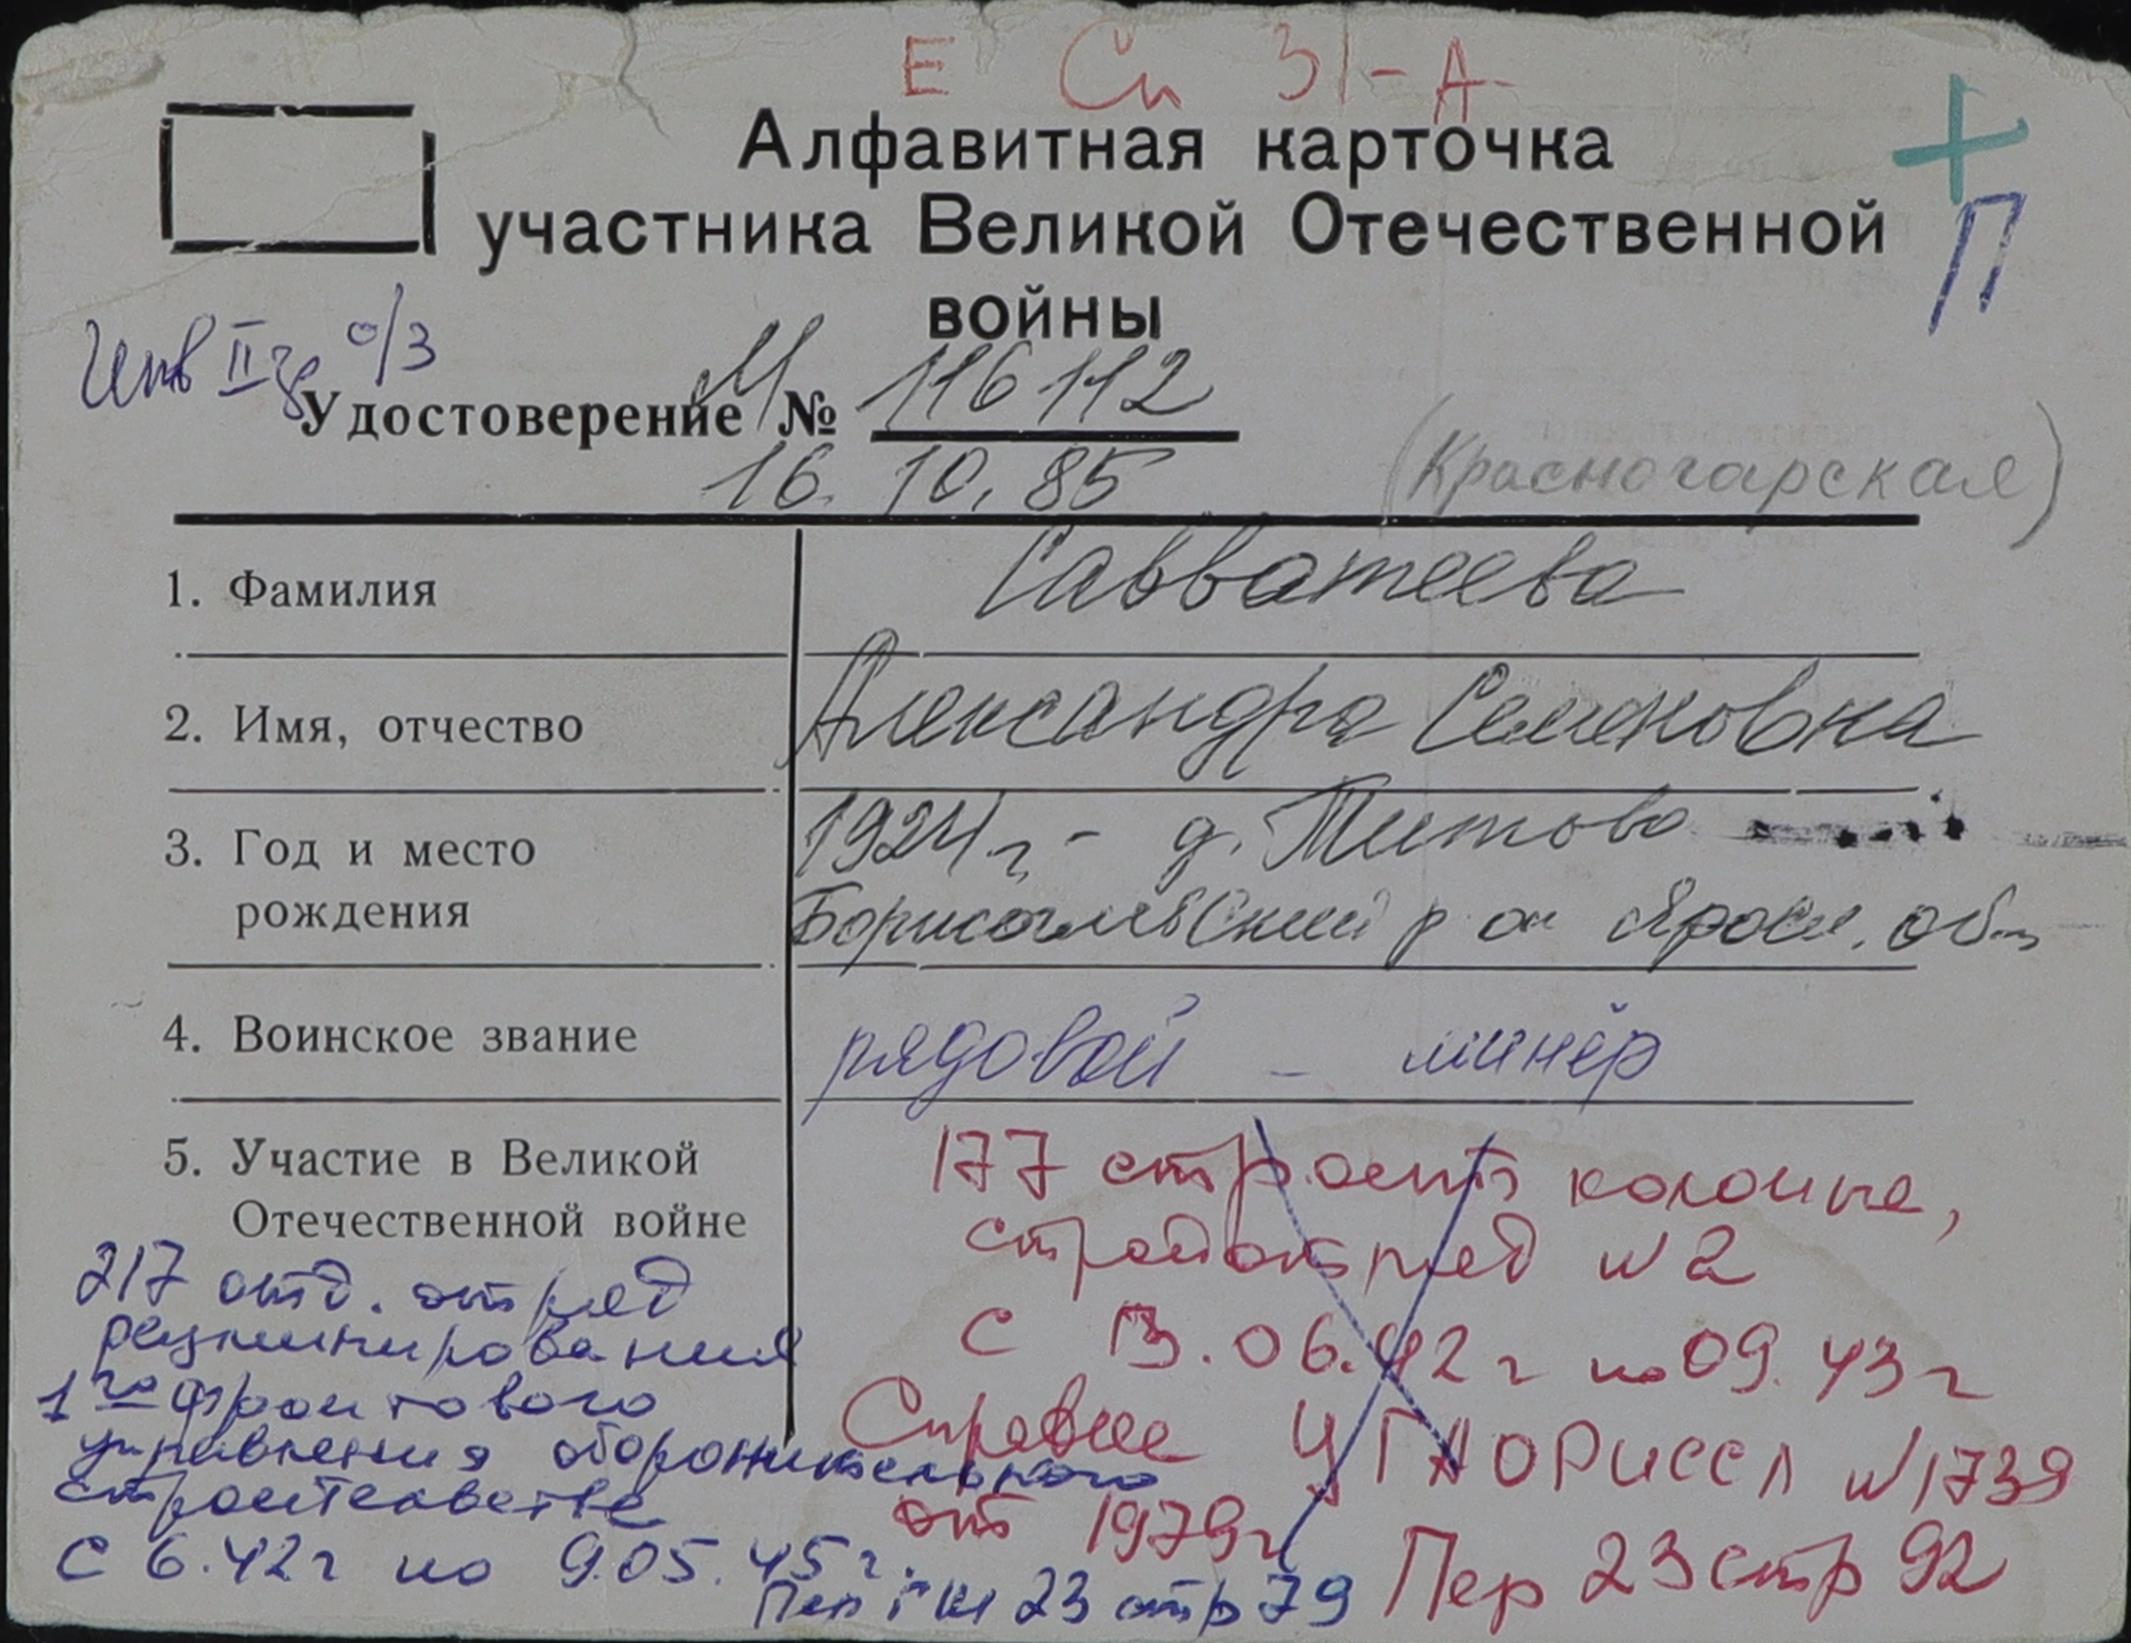 Е Сп 31-А
Алфавитная карточка
участника Великой Отечественной
войны
+
П
Инв II гр о/з
Удостоверение № 116112
16. 10. 85
(Красногорская)
1. Фамилия Савватеева
2. Имя, отчество Александра Семеновна
3. Год и место 1924 г. - д. Титово
рождения Борисоглебский р-он Яросл. обл
4. Воинское звание рядовой - минёр
5. Участие в Великой 177 строит колонна,
Отечественной войне стройотряд №2
с 13.06.42 г по 09.43 г
Справка ЦГАОРиССЛ №1739
от 1979 г
Пер 23 стр 92
217 отд. отряд
разминирования
1го фронтового
управления оборонительного
строительства
с 6.42 г по 9.05.45 г.
Пер ГШ 23 стр 79